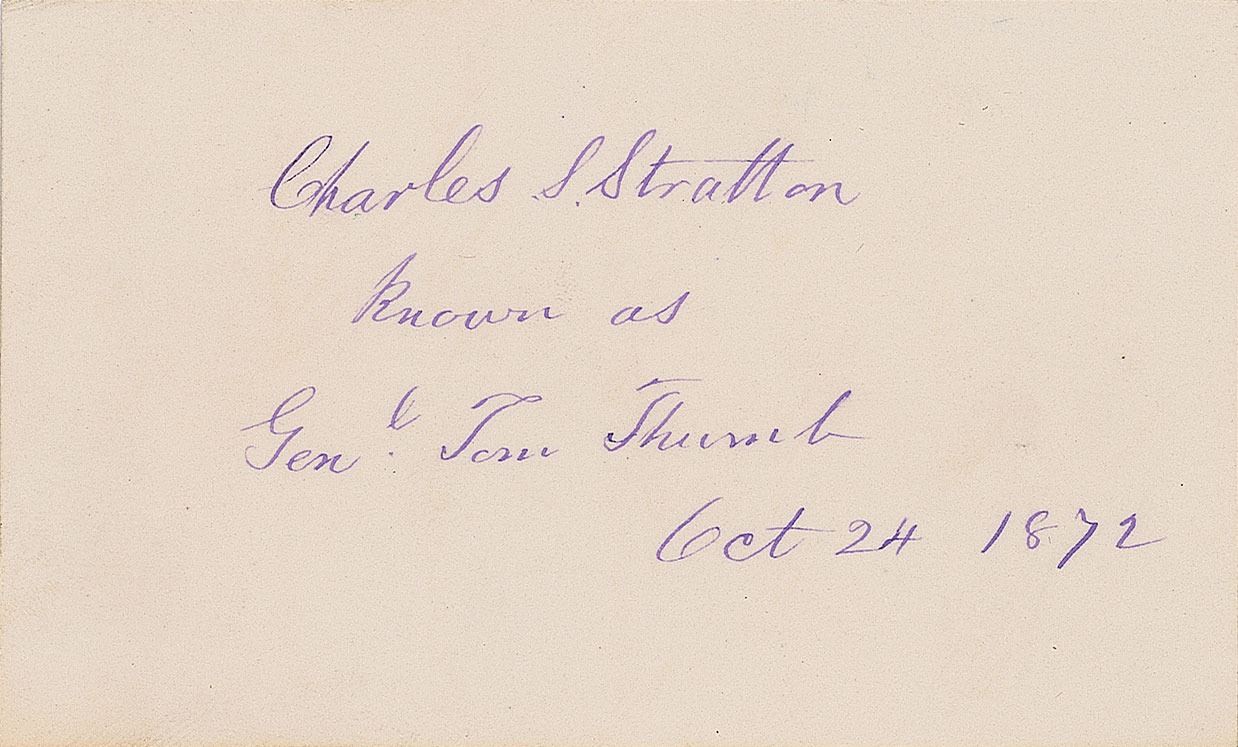 Charles S. Stratton
known as
Genl. Tom Thumb
Oct 24 1872